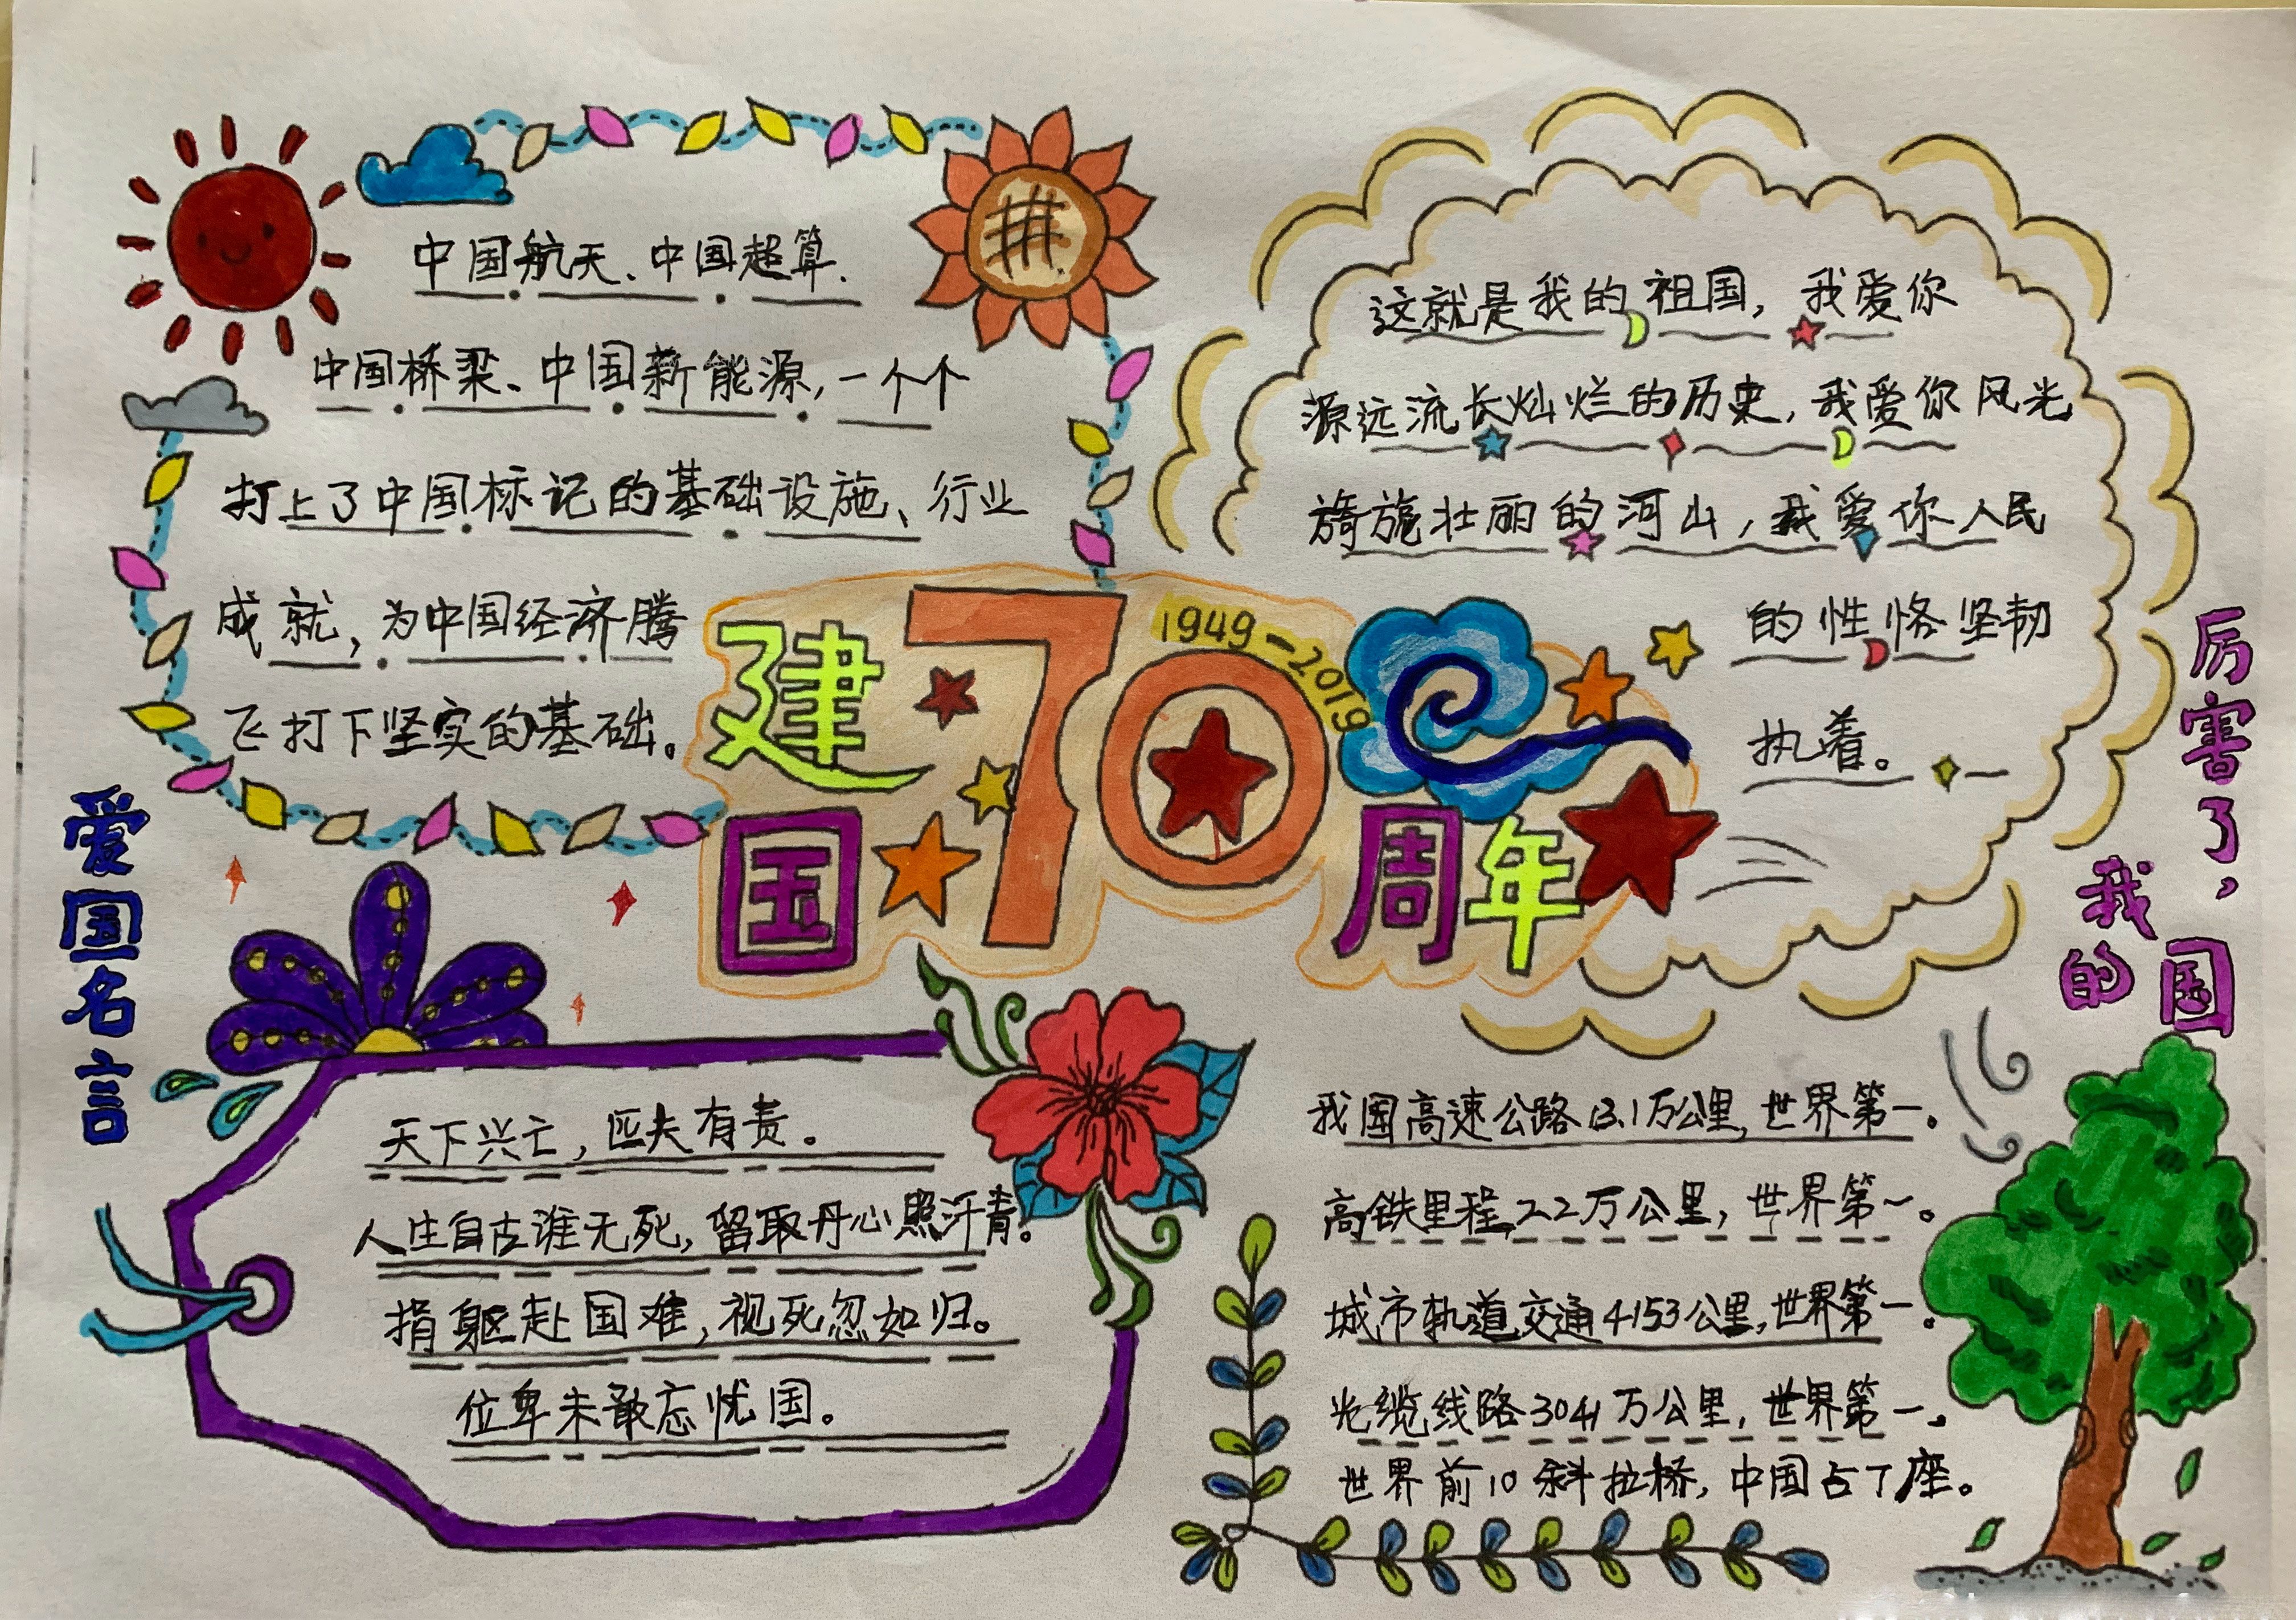 中国航天、中国超算、
中国桥梁、中国新能源,一个个
打上了中国标记的基础设施、行业
成就,为中国经济腾
飞打下坚实的基础。
建国70周年
1949-2019
这就是我的祖国,我爱你
源远流长灿烂的历史,我爱你风光
旖旎壮丽的河山,我爱你人民
的性格坚韧
执着。
爱国名言
天下兴亡,匹夫有责。
人生自古谁无死,留取丹心照汗青。
捐躯赴国难,视死忽如归。
位卑未敢忘忧国。
厉害了,
我的国
我国高速公路13.1万公里,世界第一。
高铁里程2.2万公里,世界第一。
城市轨道交通4153公里,世界第一。
光缆线路3041万公里,世界第一。
世界前10斜拉桥,中国占7座。